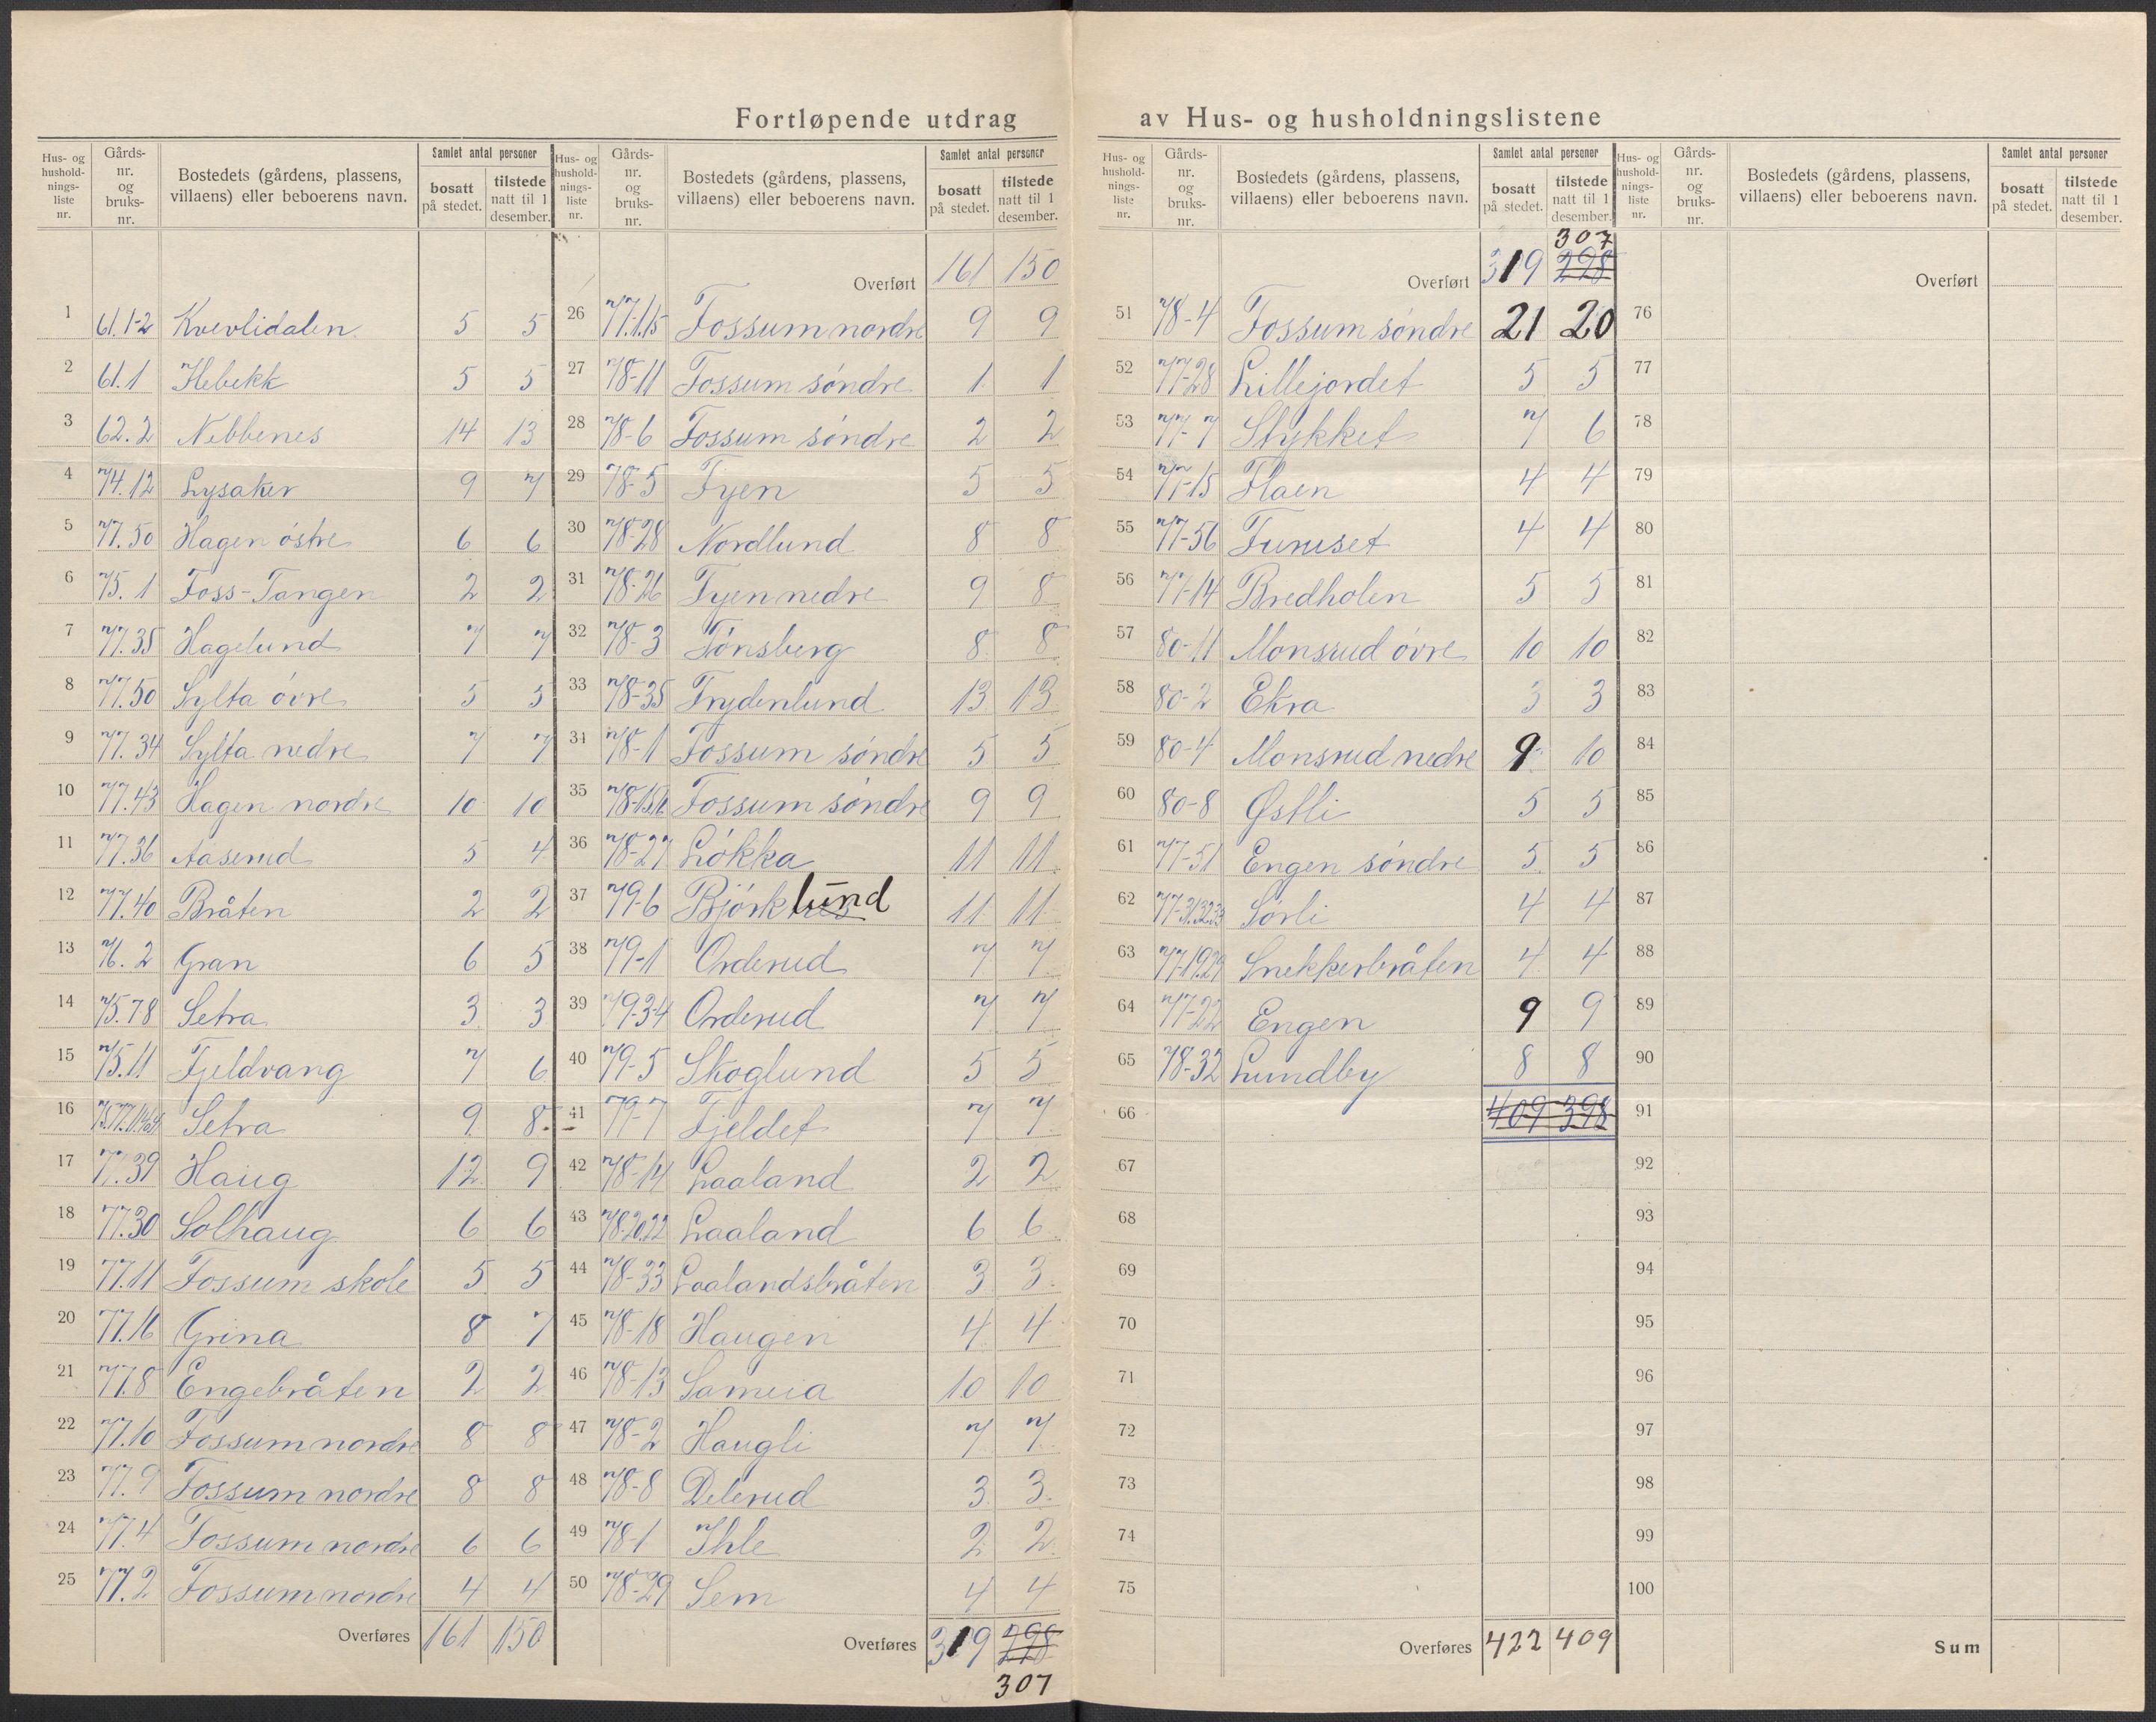 Fortløpende utdrag av Hus- og husholdningslistene
Hus- og husholdningsliste nr. | Gårds-nr. og bruks-nr. | Bostedets (gårdens, plassens, villaens) eller beboerens navn. | Samlet antal personer | bosatt på stedet. | tilstede natt til 1 desember.
1 61.1-2 Kvevlidalen 5 5
2 61.1 Hebekk 5 5
3 62.2 Nebbenes 14 13
4 74.12 Lysaker 9 7
5 77.50 Hagen østre 6 6
6 75.1 Foss-Tangen 2 2
7 77.35 Hagelund 7 7
8 77.50 Sylta øvre 5 5
9 77.34 Sylta nedre 7 7
10 77.43 Hagen nordre 10 10
11 77.36 Aaserud 5 4
12 77.40 Bråten 2 2
13 76.2 Gran 6 5
14 75.78 Setra 3 3
15 75.11 Fjeldvang 7 6
16 Setra 9 8
17 77.39 Haug 12 9
18 77.30 Solhaug 6 6
19 77.11 Fossum skole 5 5
20 77.16 Grina 8 7
21 77.8 Engebråten 2 2
22 77.10 Fossum nordre 8 8
23 77.9 Fossum nordre 8 8
24 77.4 Fossum nordre 6 6
25 77.2 Fossum nordre 4 4
Overføres 161 150
Hus- og husholdnings-liste nr. | Gårds-nr. og bruks-nr. | Bostedets (gårdens, plassens, villaens) eller beboerens navn. | Samlet antal personer | bosatt på stedet. | tilstede natt til 1 desember.
Overført 161 150
26 77.1.15 Fossum nordre 9 9
27 78-11 Fossum søndre 1 1
28 78-6 Fossum søndre 2 2
29 78-5 Fyen 5 5
30 78-28 Nordlund 8 8
31 78-26 Fyen nedre 9 8
32 78-3 Tønsberg 8 8
33 78-35 Frydenlund 13 13
34 78-1 Fossum søndre 5 5
35 Fossum søndre 9 9
36 78-27 Løkka 11 11
37 79-6 Bjørklund 11 11
38 79-1 Orderud 7 7
39 79-3-4 Orderud 7 7
40 79-5 Skoglund 5 5
41 79-7 Fjeldet 7 7
42 78-14 Laaland 2 2
43 78-20.22 Laaland 6 6
44 78-33 Laalandsbråten 3 3
45 78-18 Haugen 4 4
46 78-13 Sameia 10 10
47 78-2 Haugli 7 7
48 78-8 Delerud 3 3
49 78-1 Ihle 2 2
50 78-29 Sem 4 4
Overføres 319 298
307
Hus- og husholdnings-liste nr. | Gårds-nr. og bruks-nr. | Bostedets (gårdens, plassens, villaens) eller beboerens navn. | Samlet antal personer | bosatt på stedet. | tilstede natt til 1 desember.
307
Overført 319 298
51 78-4 Fossum søndre 21 20
52 77-28 Lillejordet 5 5
53 77-7 Stykket 7 6
54 77-15 Flaen 4 4
55 77-56 Furuset 4 4
56 77-14 Bredholen 5 5
57 80-11 Monsrud øvre 10 10
58 80-2 Ekra 3 3
59 80-4 Monsrud nedre 9 10
60 80-8 Østli 5 5
61 77-51 Engen søndre 5 5
62 Sørli 4 4
63 77-19.29 Snekkerbråten 4 4
64 77-22 Engen 9 9
65 78-32 Lundby 8 8
66 409 398
67
68
69
70
71
72
73
74
75
Overføres 422 409
Hus- og husholdnings-liste nr. | Gårds-nr. og bruks-nr. | Bostedets (gårdens, plassens, villaens) eller beboerens navn. | Samlet antal personer | bosatt på stedet. | tilstede natt til 1 desember.
Overført
76
77
78
79
80
81
82
83
84
85
86
87
88
89
90
91
92
93
94
95
96
97
98
99
100
Sum